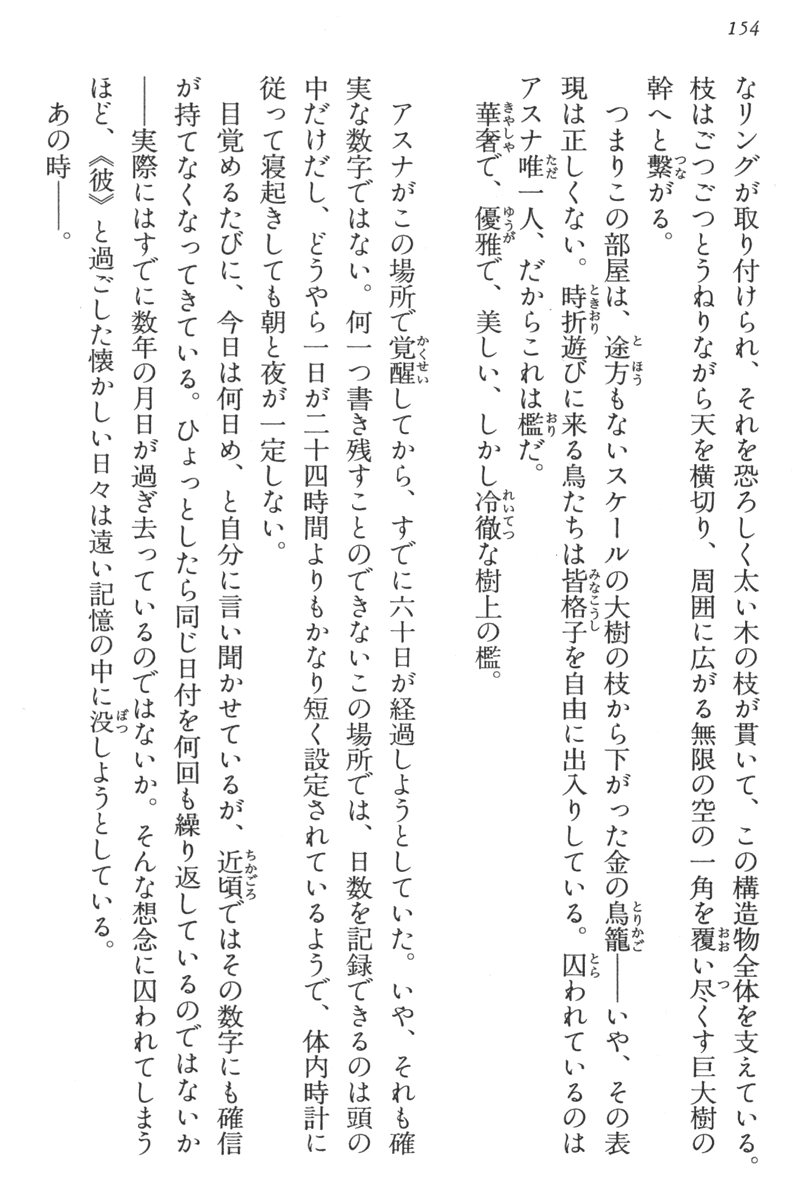 154
なリングが取り付けられ、それを恐ろしく太い木の枝が貫いて、この構造物全体を支えている。
枝はごつごつとうねりながら天を横切り、周囲に広がる無限の空の一角を覆い尽くす巨大樹の
幹へと繫がる。
つまりこの部屋は、途方もないスケールの大樹の枝から下がった金の鳥籠――いや、その表
現は正しくない。時折遊びに来る鳥たちは皆格子を自由に出入りしている。囚われているのは
アスナ唯一人、だからこれは檻だ。
華奢で、優雅で、美しい、しかし冷徹な樹上の檻。
アスナがこの場所で覚醒してから、すでに六十日が経過しようとしていた。いや、それも確
実な数字ではない。何一つ書き残すことのできないこの場所では、日数を記録できるのは頭の
中だけだし、どうやら一日が二十四時間よりもかなり短く設定されているようで、体内時計に
従って寝起きしても朝と夜が一定しない。
目覚めるたびに、今日は何日め、と自分に言い聞かせているが、近頃ではその数字にも確信
が持てなくなってきている。ひょっとしたら同じ日付を何回も繰り返しているのではないか
――実際にはすでに数年の月日が過ぎ去っているのではないか。そんな想念に囚われてしまう
ほど、《彼》と過ごした懐かしい日々は遠い記憶の中に没しようとしている。
あの時――。